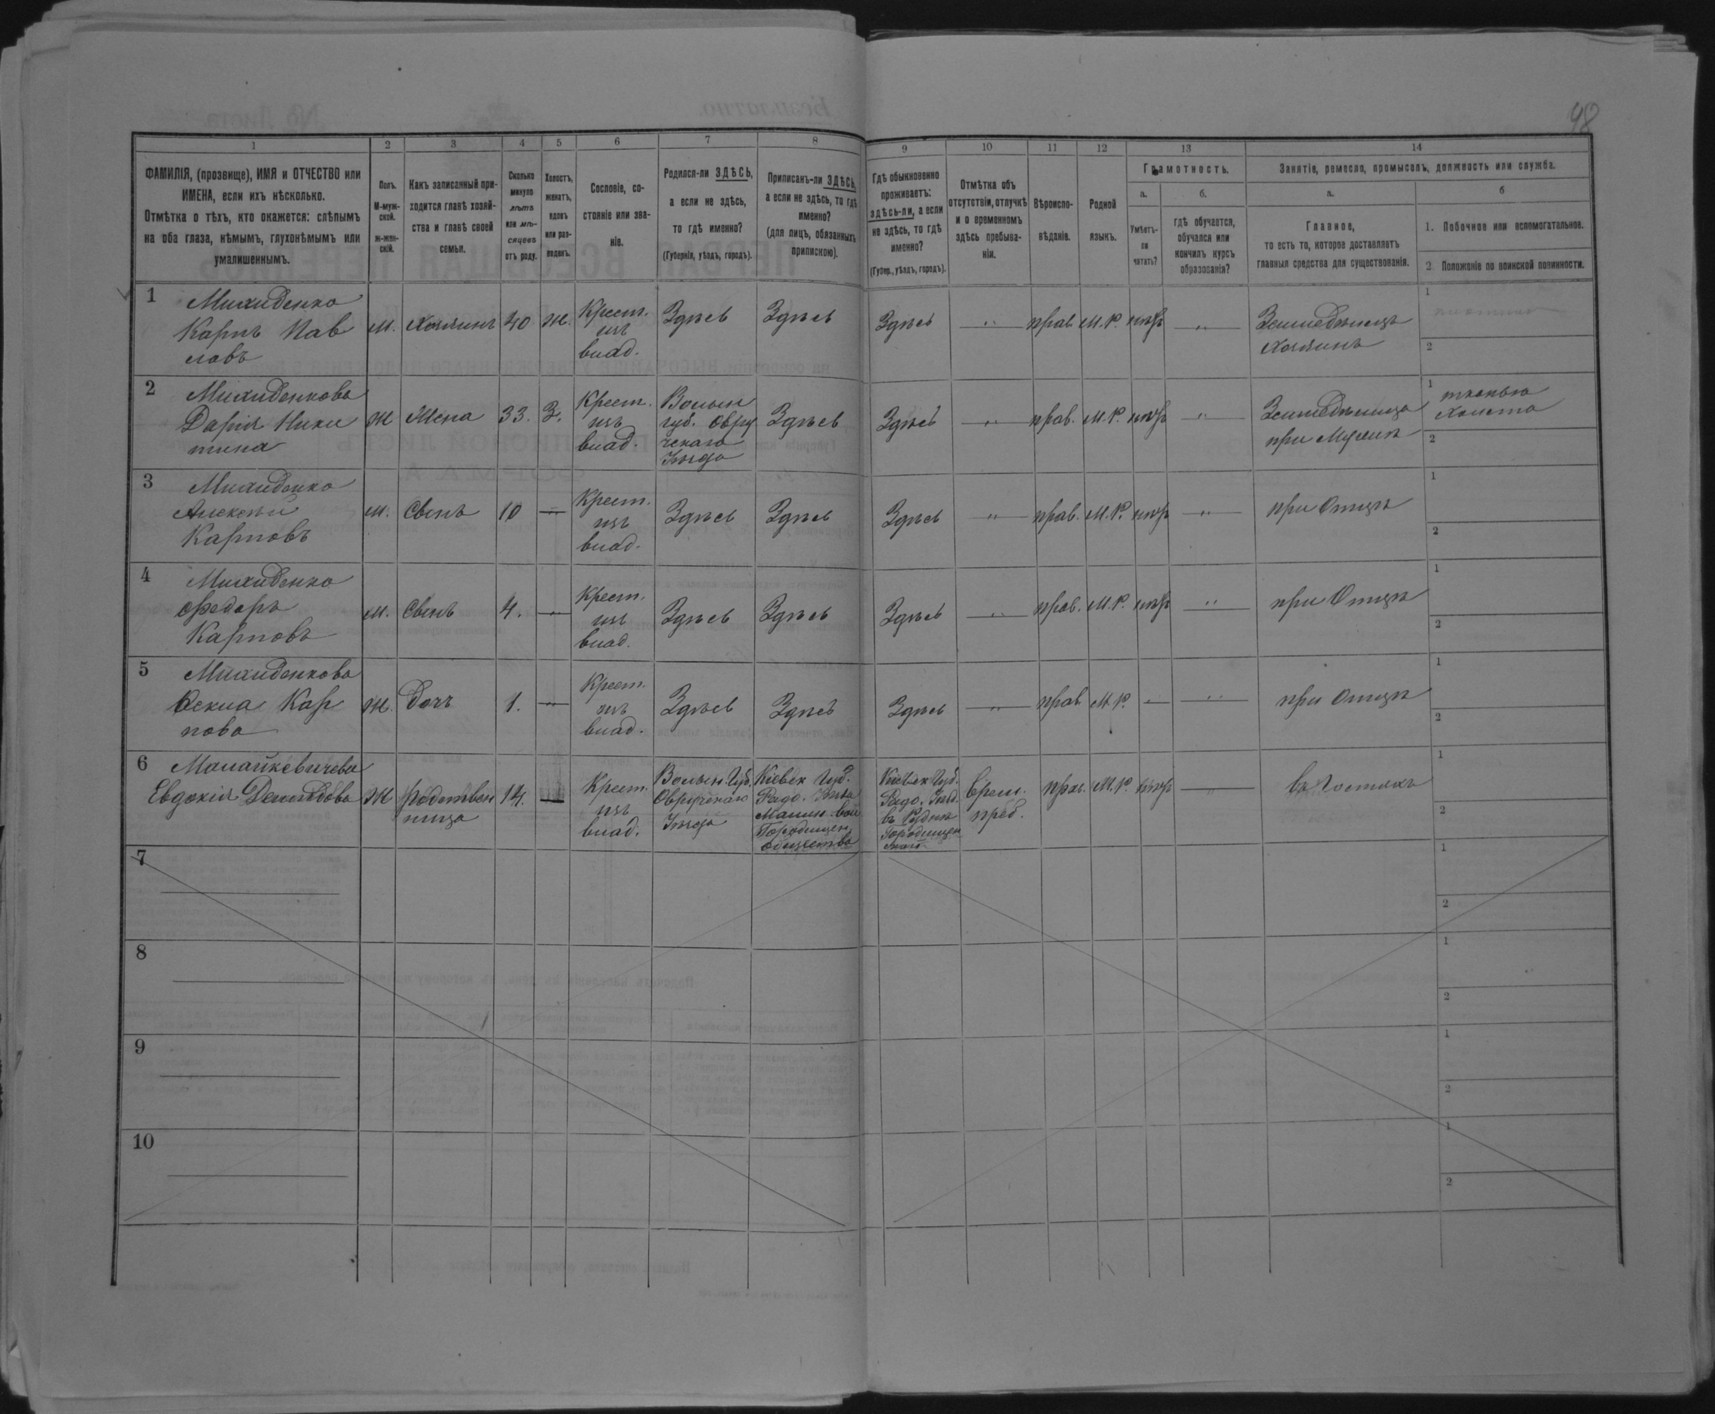 98
1 2 3 4 5 6 7 8 9 10 11 12 13 14
ФАМИЛІЯ, (прозвище), ИМЯ и ОТЧЕСТВО или
ИМЕНА, если ихъ нѣсколько.
Отмѣтка о тѣхъ, кто окажется: слѣпымъ
на оба глаза, нѣмымъ, глухонѣмымъ или
умалишеннымъ.
Полъ.
М-муж-
ской.
ж-жен-
скій.
Какъ записанный при-
ходится главѣ хозяй-
ства и главѣ своей
семьи.
Сколько
минуло
лѣтъ
или мѣ-
сяцевъ
отъ роду.
Холостъ,
женатъ,
вдовъ
или раз-
веденъ.
Сословіе, со-
стояніе или зва-
ніе.
Родился-ли ЗДѢСЬ,
а если не здѣсь,
то гдѣ именно?
(Губернія, уѣздъ, городъ).
Приписанъ-ли ЗДѢСЬ,
а если не здѣсь, то гдѣ
именно?
(для лицъ, обязанныхъ
припискою).
Гдѣ обыкновенно
проживаетъ:
здѣсь-ли, а если
не здѣсь, то гдѣ
именно?
(Губер., уѣздъ, городъ).
Отмѣтка объ
отсутствіи, отлучкѣ
и о временномъ
здѣсь пребыва-
ніи.
Вѣроиспо-
вѣданіе.
Родной
языкъ.
Грамотность.
а.
Умѣетъ-
ли
читать?
б.
гдѣ обучается,
обучался или
кончилъ курсъ
образованія?
Занятіе, ремесло, промыселъ, должность или служба.
а.
Главное,
то есть то, которое доставляетъ
главныя средства для существованія.
б
1. Побочное или вспомогательное.
2 Положеніе по воинской повинности.
1
Михиденко
Карпъ Пав
ловъ
м. Хозяинъ 40 ж.
Крест.
изъ
влад.
Здѣсь Здѣсь Здѣсь — прав М.Р. нтъ —
Земледѣлецъ
Хозяинъ
1
2
2
Михиденкова
Дарія Ники
тина
ж Жена 33. З.
Крест.
изъ
влад.
Волын
губ. Овру
чскаго
Уѣзда
Здѣсь Здѣсь — прав. М.Р. нтъ —
Земледѣлица
при Мужѣ
1
тканью
Холста
2
3
Михиденко
Алексѣй
Карповъ
м. Сынъ 10 —
Крест.
изъ
влад.
Здѣсь Здѣсь Здѣсь — прав. М.Р. нтъ —
при Отцѣ
1
2
4
Михиденко
Федоръ
Карповъ
м. Сынъ 4. —
Крест.
изъ
влад.
Здѣсь Здѣсь Здѣсь — прав. М.Р. нтъ —
при Отцѣ
1
2
5
Михиденкова
Карпова
ж. Дочь 1. —
Крест.
изъ
влад.
Здѣсь Здѣсь Здѣсь — прав М.Р. — —
при Отцѣ
1
2
6
Евдокія Демидова
ж родствен
ница
14. —
Крест.
изъ
влад.
Волын. Губ.
Овручскаго
Уѣзда
Кіевск Губ.
Радо. Уѣзд
Малин. вол
Городищен.
Общества
Кіевск Губ.
Радо. Уѣзд.
въ Руднѣ
Городищен
ской
врем.
преб.
прав. М.Р нтъ —
въ Гостяхъ
1
2
7
1
2
8
1
2
9
1
2
10
1
2